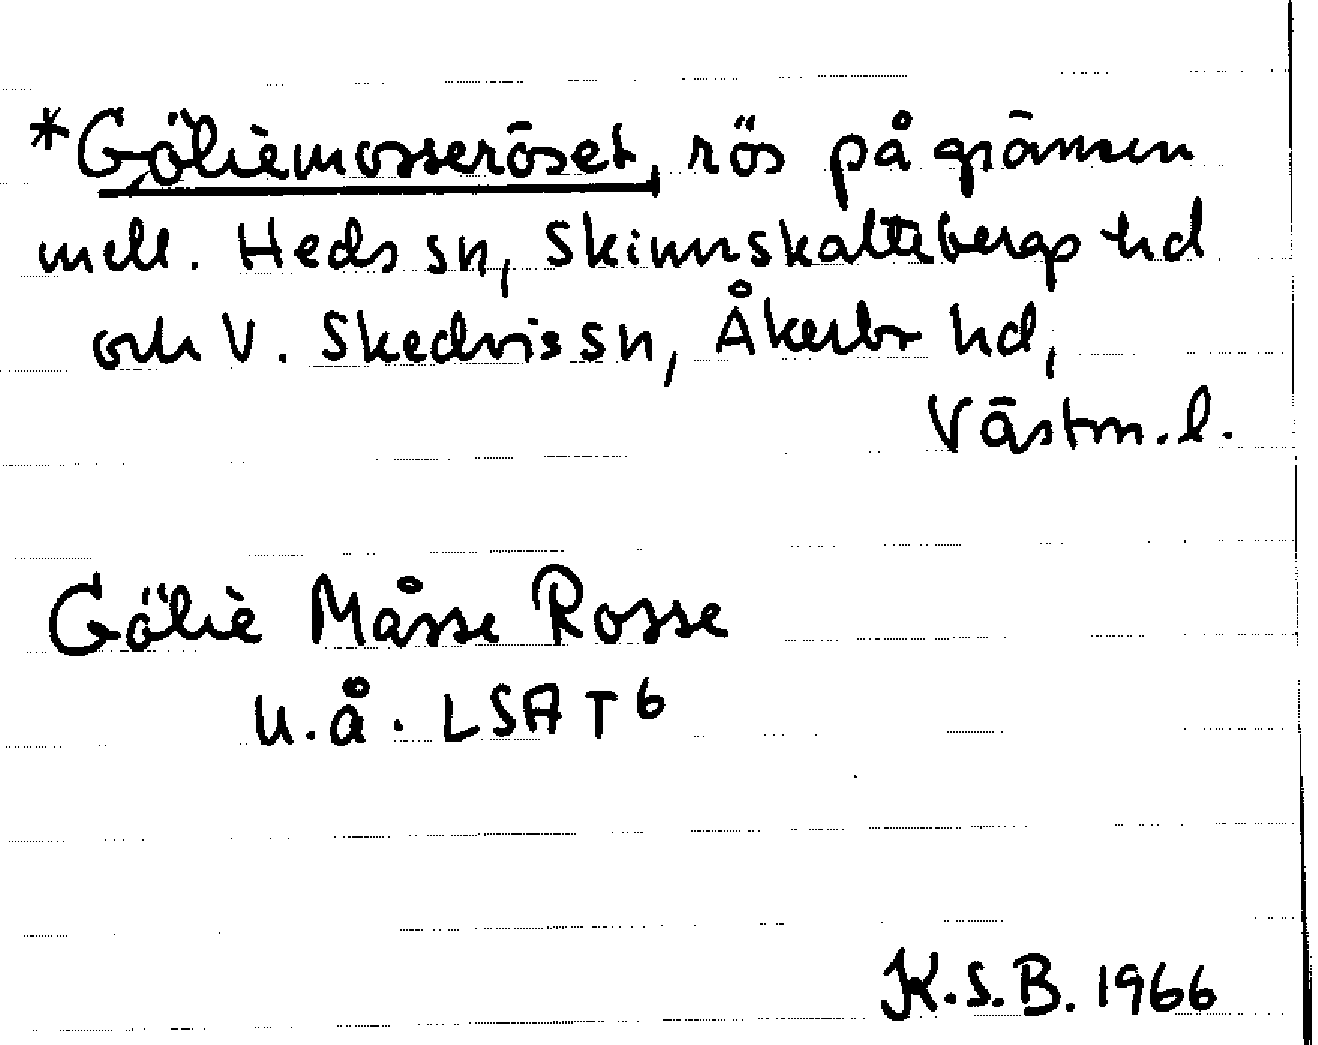 *Göliemosseröset, rös på gränsen
mell. Heds sn, Skinnskattebergs hd
och V. Skedvis sn, Åkerbr hd,
Västm. l.
Gölie Måsse Rosse
u.å. LSA T6
K.S.B. 1966